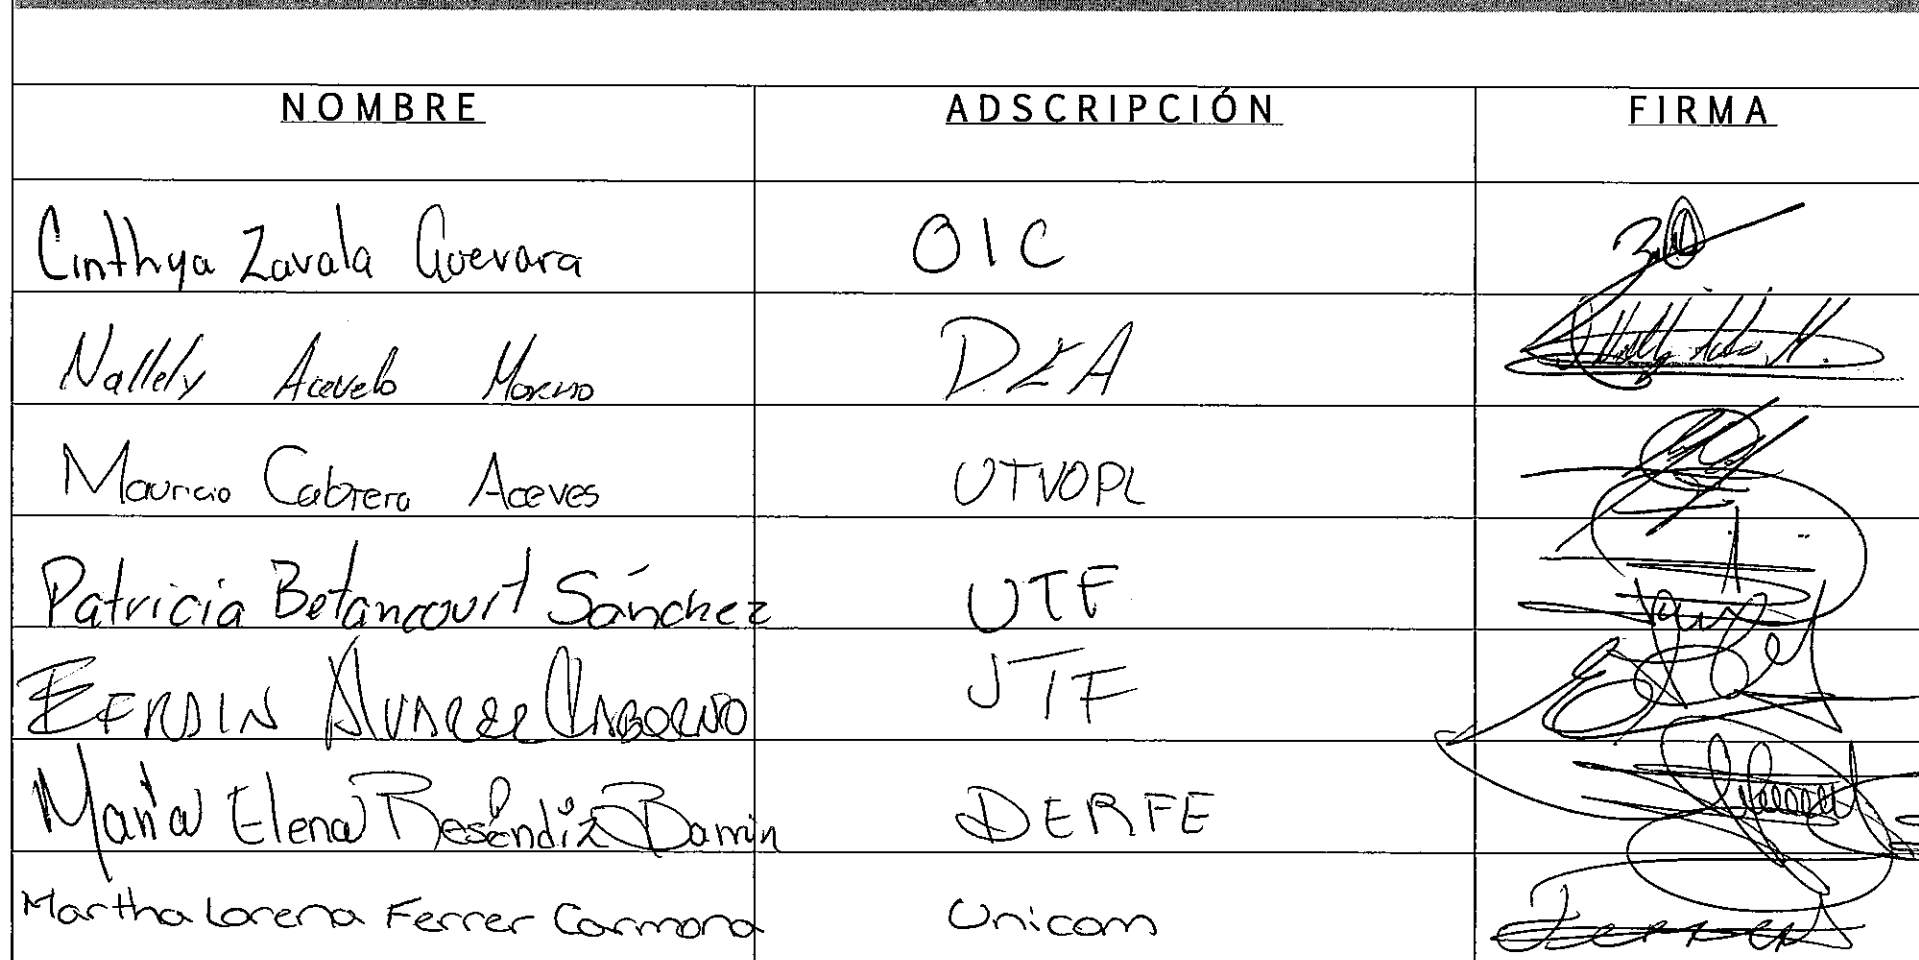 NOMBRE ADSCRIPCIÓN FIRMA
Cinthya Zavala Guevara OIC
Nallely Acevelo Moreno DEA
Mauricio Cabrera Aceves UTVOPL
Patricia Betancourt Sánchez UTF
EFRAIN ALVAREZ UTF
María Elena Reséndiz Barrin DERFE
Martha Lorena Ferrer Carmona Unicom